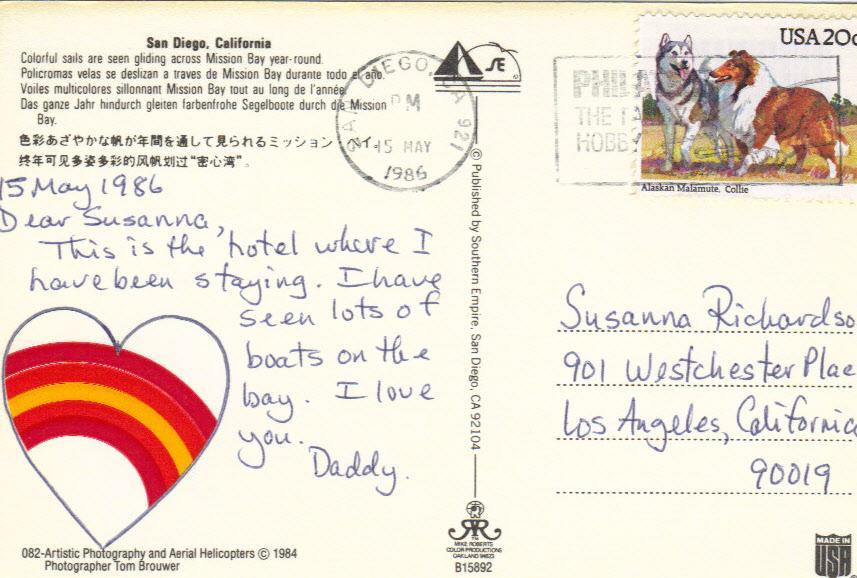 San Diego, California
Colorful sails are seen gliding across Mission Bay year-round.
Policromas velas se deslizan a traves de Mission Bay durante todo el ano.
Voiles multicolores sillonnant Mission Bay tout au long de l'année.
Das ganze Jahr hindurch gleiten farbenfrohe Segelboote durch die Mission
Bay.
色彩あざやかな帆が年間を通して見られるミッション・ベイ。
终年可见多姿多彩的风帆划过“密心湾”。
15 May 1986
Dear Susanna,
This is the hotel where I
have been staying. I have
seen lots of
boats on the
bay. I love
you.
Daddy.
082-Artistic Photography and Aerial Helicopters © 1984
Photographer Tom Brouwer
SE
SAN DIEGO, CA 921
PM
15 MAY
1986
© Published by Southern Empire, San Diego, CA 92104
MIKE ROBERTS
COLOR PRODUCTIONS
OAKLAND 94623
B15892
THE
HOBB
USA 20c
Alaskan Malamute, Collie
Susanna Richardso
901 Westchester Place
Los Angeles, California
90019
MADE IN
USA